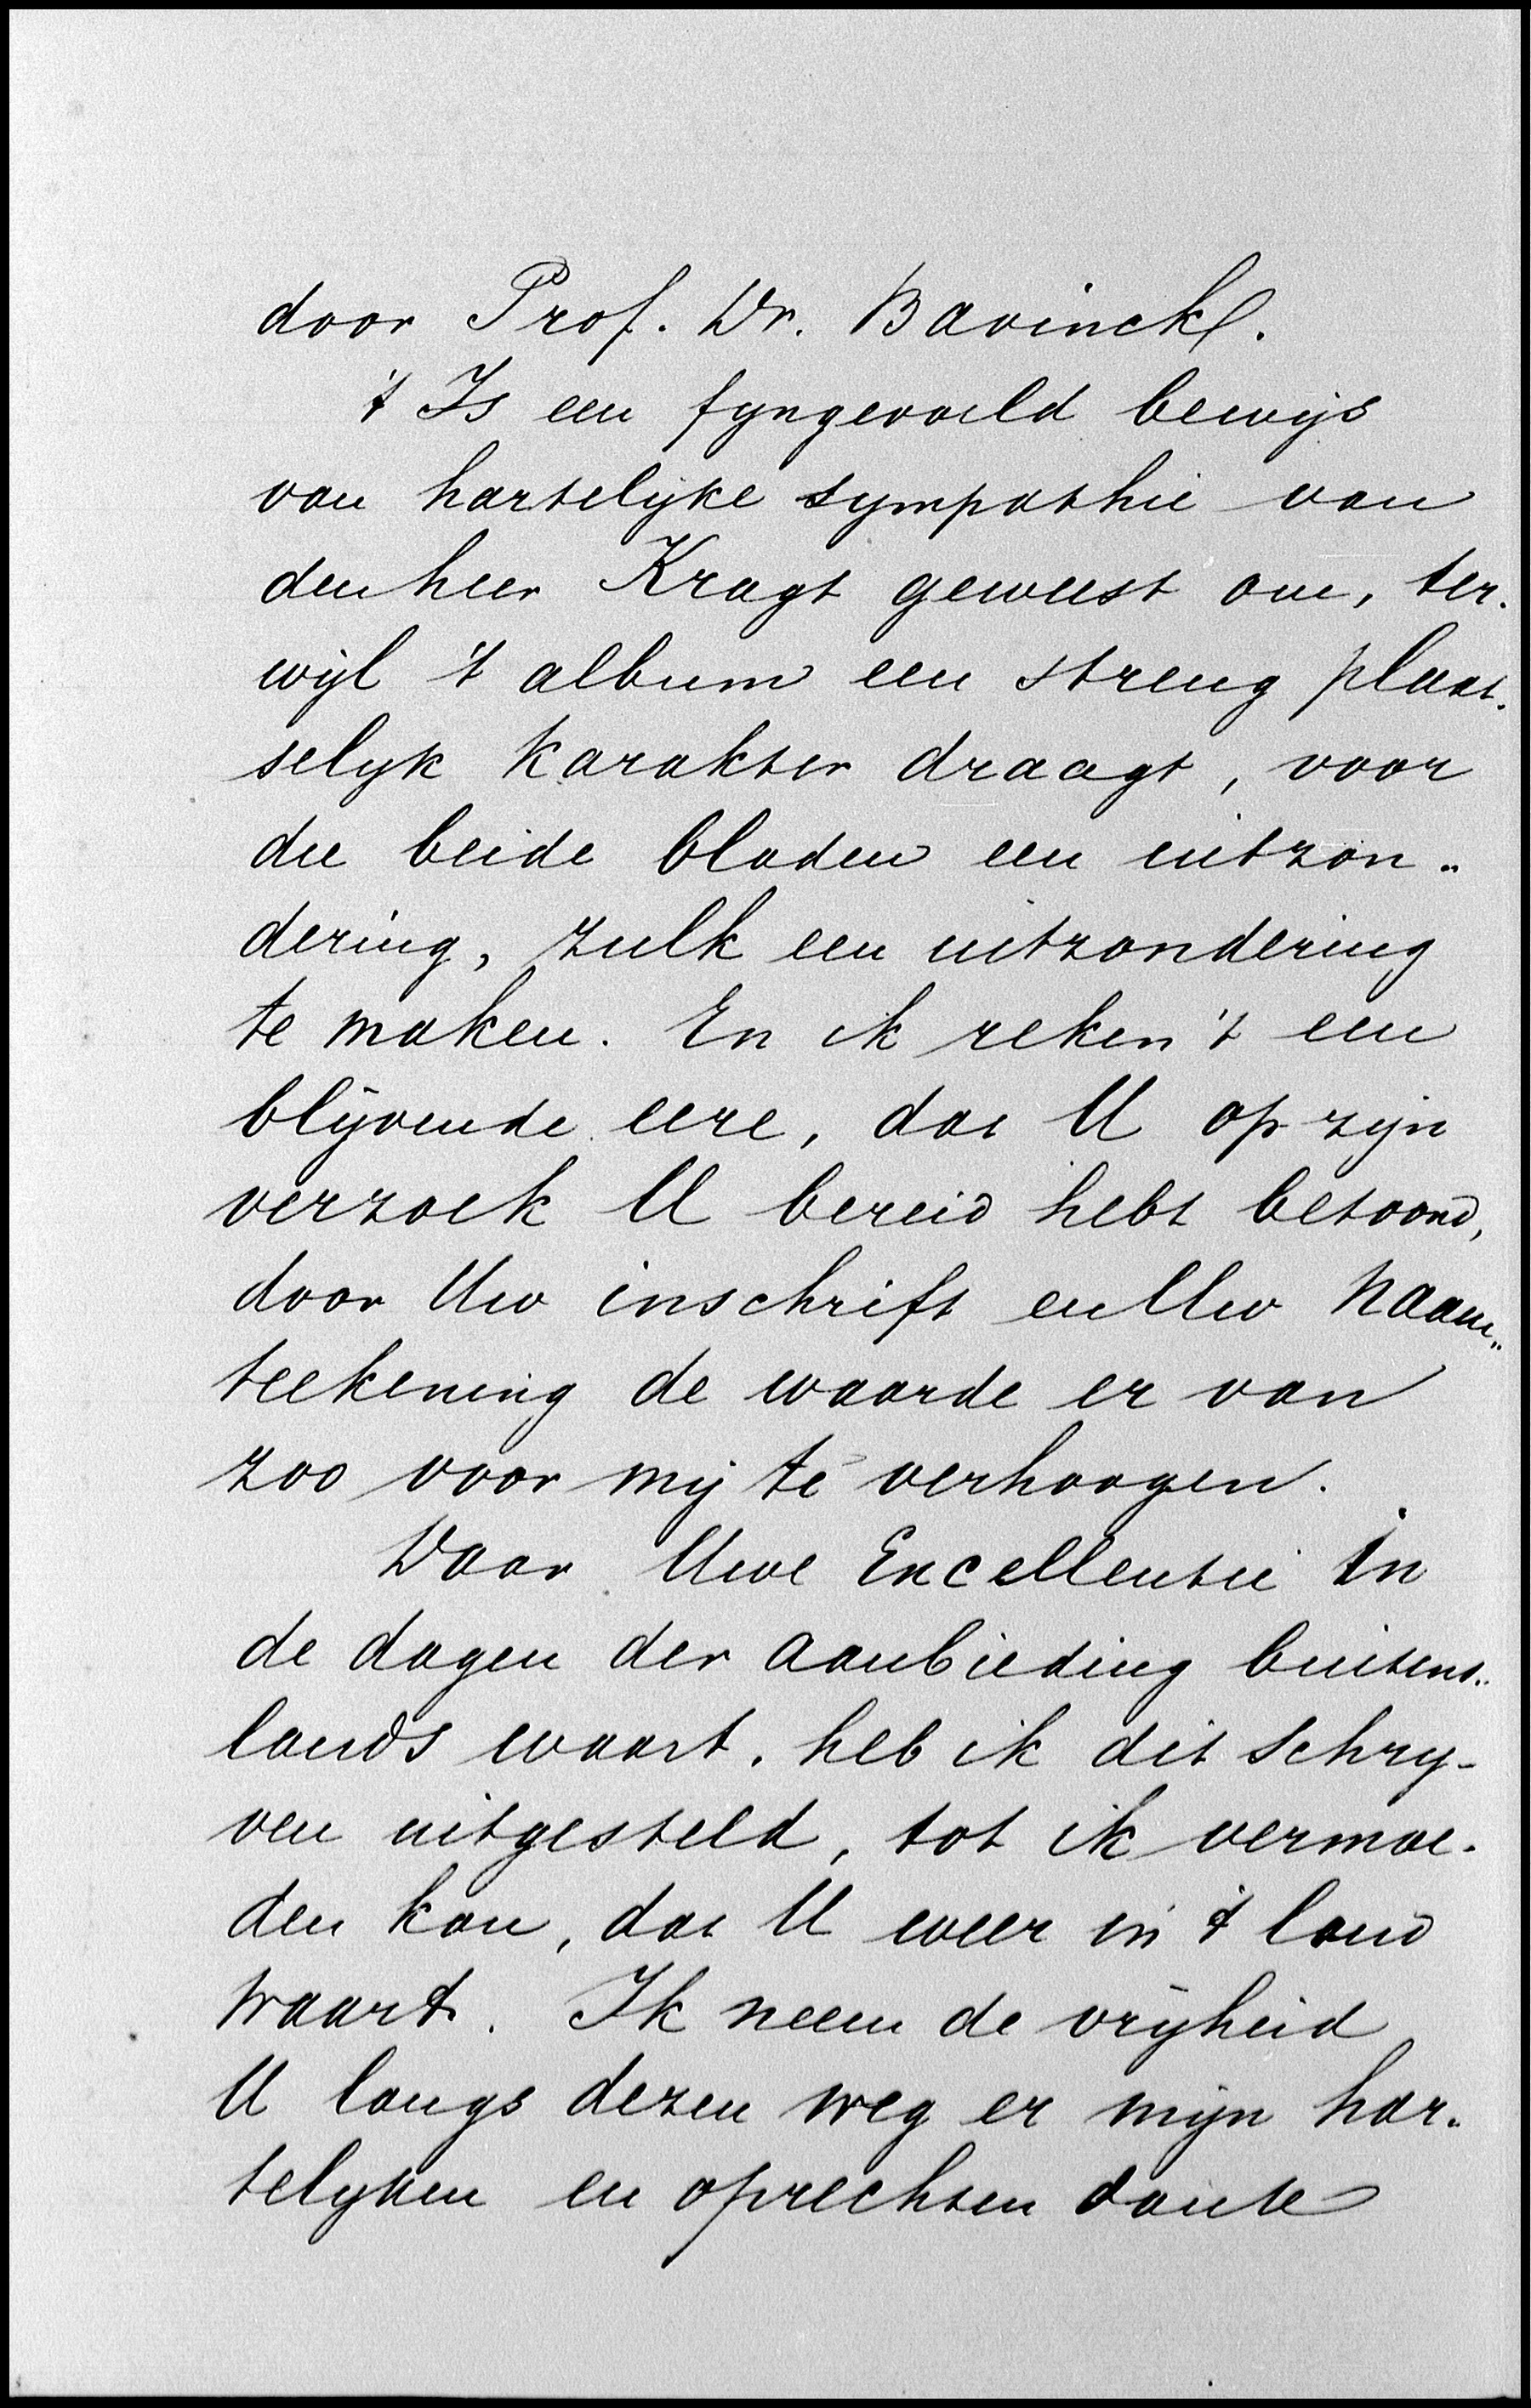 door Prof. Dr. Bavinck.
't Is een fyngevoeld bewijs
van hartelyke sympathie van
den heer Kragt geweest om, ter-
wijl 't album een streng plaat-
selyk karakter draagt, voor
die beide bladen een uitzon-
dering, zulk een uitzondering
te maken. En ik reken 't een
blijvende eere, dat U op zijn
verzoek U bereid hebt betoond,
door Uw inschrift en Uw naam-
teekening de waarde er van
zoo voor mij te verhoogen.
Daar Uwe Excellentie in
de dagen der aanbieding buitens-
lands waart, heb ik dit schry-
ven uitgesteld, tot ik vermoe-
den kon, dat U weer in 't land
waart. Ik neem de vrijheid
U langs dezen weg er mijn har-
telyken en oprechten dank